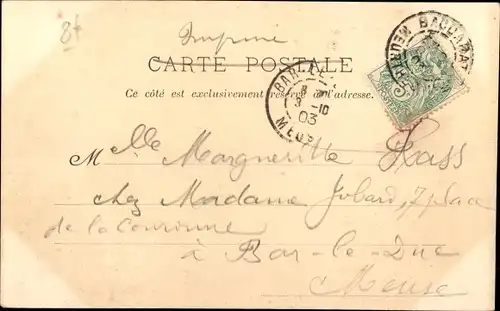 8f
Imprimé
CARTE POSTALE
Ce côté est exclusivement réservé à l'adresse.
BACCARAT
MEURTHE
BAR-LE-
8
3 -10
03
MEUSE
Mlle Margueritte Kass
chez Madame Jobard, 7 place
de la Couronne
à Bar-le-Duc
Meuse